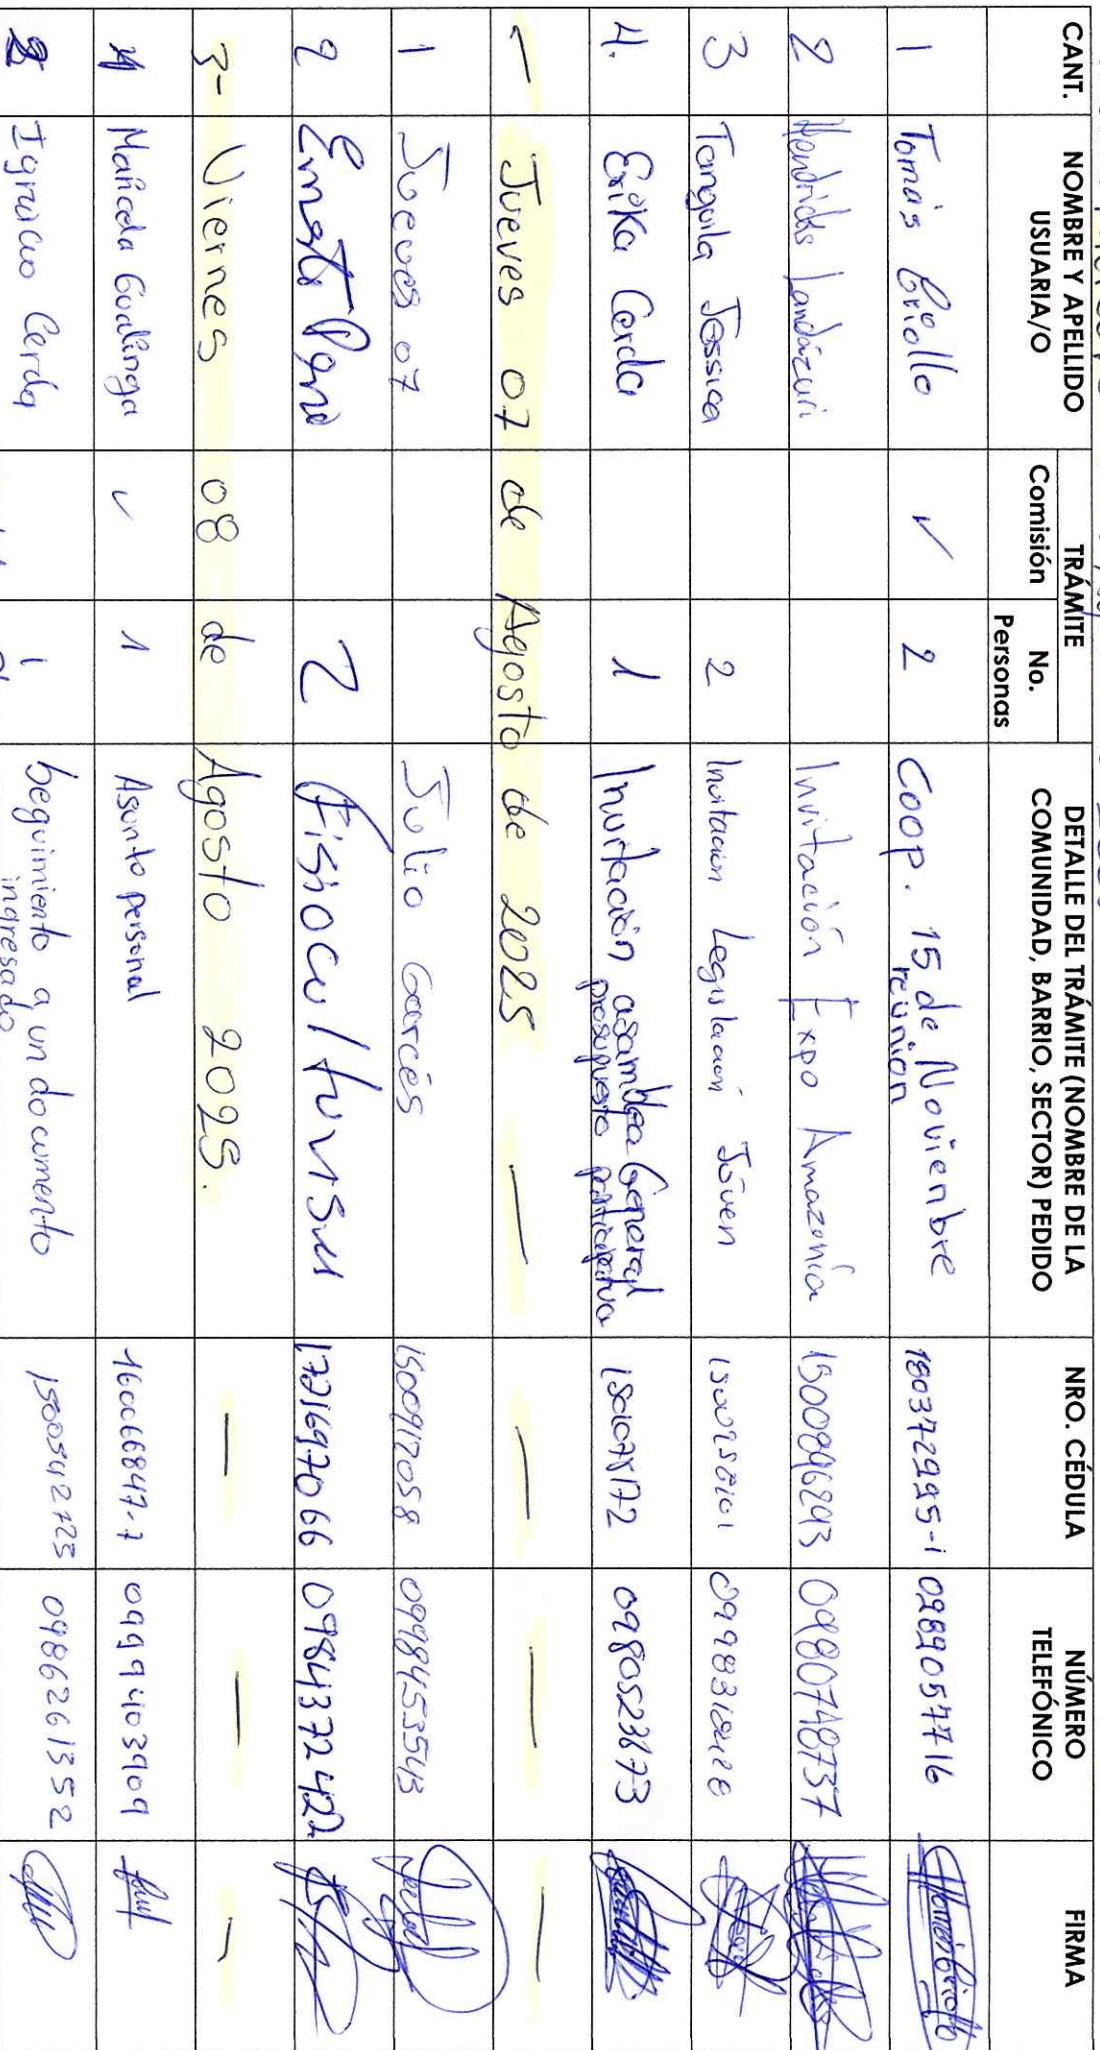 CANT. NOMBRE Y APELLIDO USUARIA/O TRÁMITE Comisión No. Personas DETALLE DEL TRÁMITE (NOMBRE DE LA COMUNIDAD, BARRIO, SECTOR) PEDIDO NRO. CÉDULA NÚMERO TELEFÓNICO FIRMA
1 Tomás Criollo ✓ 2 Coop. 15 de Noviembre reunion 180372995-1 0289057716
2 Hendricks Landázuri Invitación Expo Amazonía 1500896293 0980748737
3 Tanguila Jessica 2 Invitacion Legislación Jóven
4. Erika Cerda 1 Invitación asamblea General presupuesto participativo 0980523873
— Jueves 07 de Agosto de 2025 — — — —
1 Jueves 07 Julio Garcés 1500917058 0998453543
2 2 fisioculturismo 1721697066 0984372422
3- Viernes 08 de Agosto 2025. — — —
Maricela Gualinga ✓ 1 Asunto personal 160066847-7 0999403909
2 Ignacio Cerda 1 Seguimiento a un documento ingresado 1500542723 0986261352